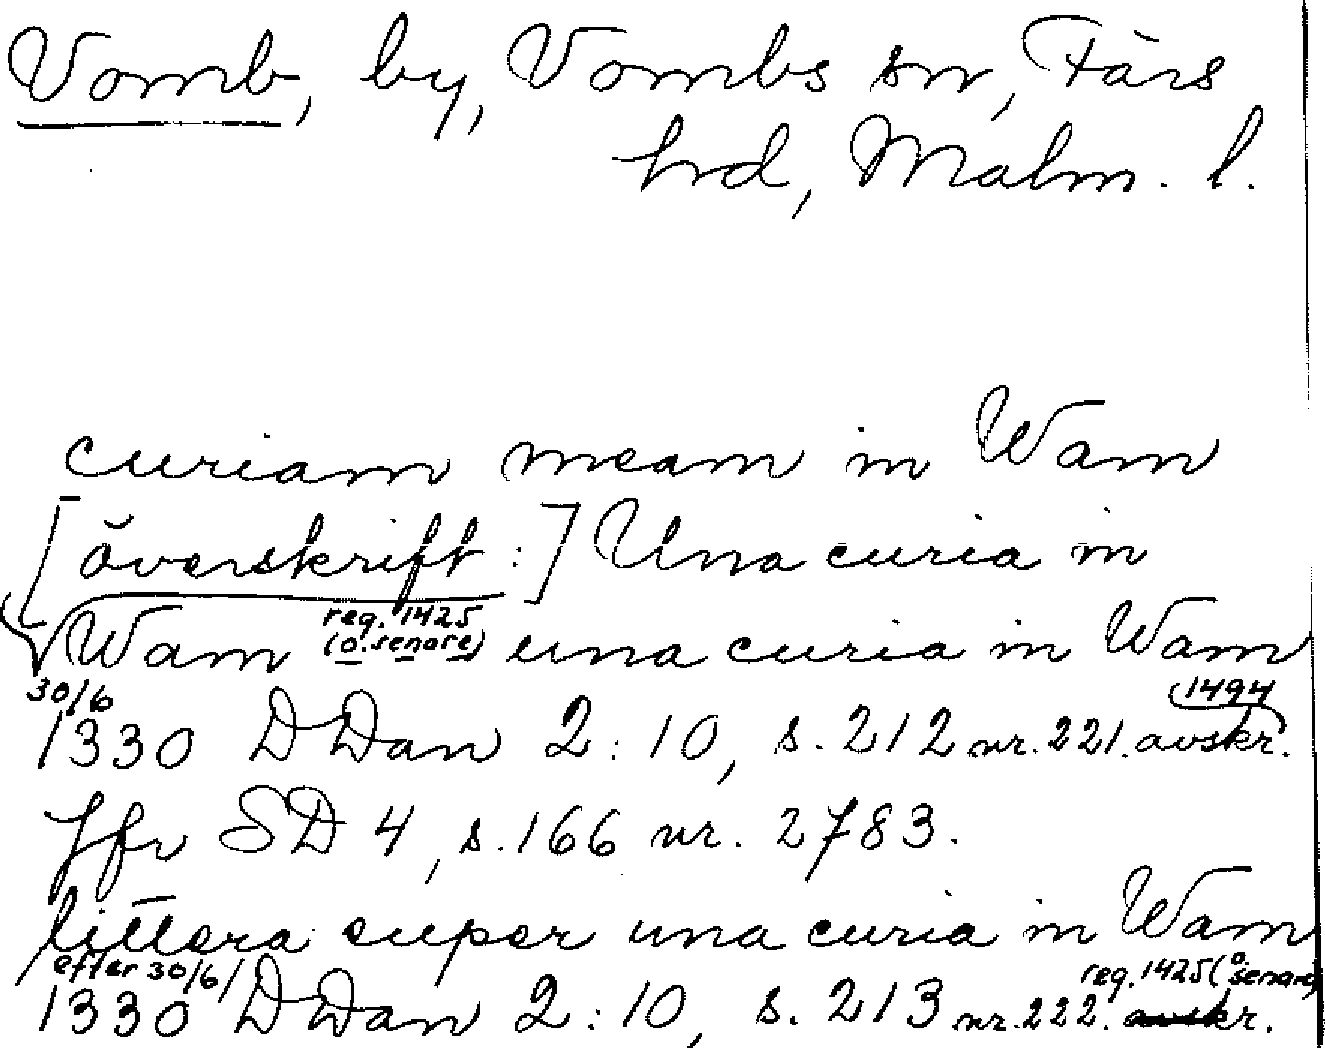 Vomb, by, Vombs sn, Färs
hd, Malm. l.
curiam meam in Wam
[överskrift:] Una curia in
Wam reg. 1425 (o. senare) una curia in Wam
30/6 1494
1330 DDan 2:10, s. 212 nr. 221. avskr.
Jfr SD 4, s. 166 nr. 2783.
littera super una curia in Wam
efter 30/6 reg. 1425 (o senare)
1330 DDan 2:10, s. 213 nr. 222.